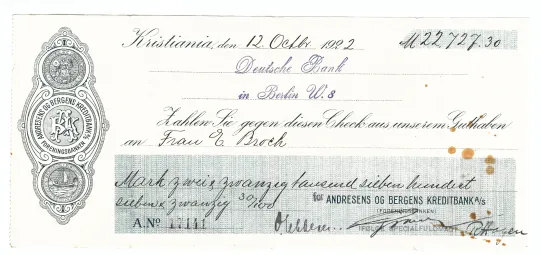 Kristiania, den 12. Octbr. 1922 M 22,727.30
Deutsche Bank
in Berlin W. 8
Zahlen Sie gegen diesen Check aus unserem Guthaben
an Frau E Broch
Mark zwei & zwanzig tausend sieben hundert
sieben & zwanzig 30/100
for ANDRESENS OG BERGENS KREDITBANK A/S
(FORENINGSBANKEN)
A.No 17141
IFØLGE SPECIALFULDMAGT
ANDRESENS OG BERGENS KREDITBANK A/S
FORENINGSBANKEN